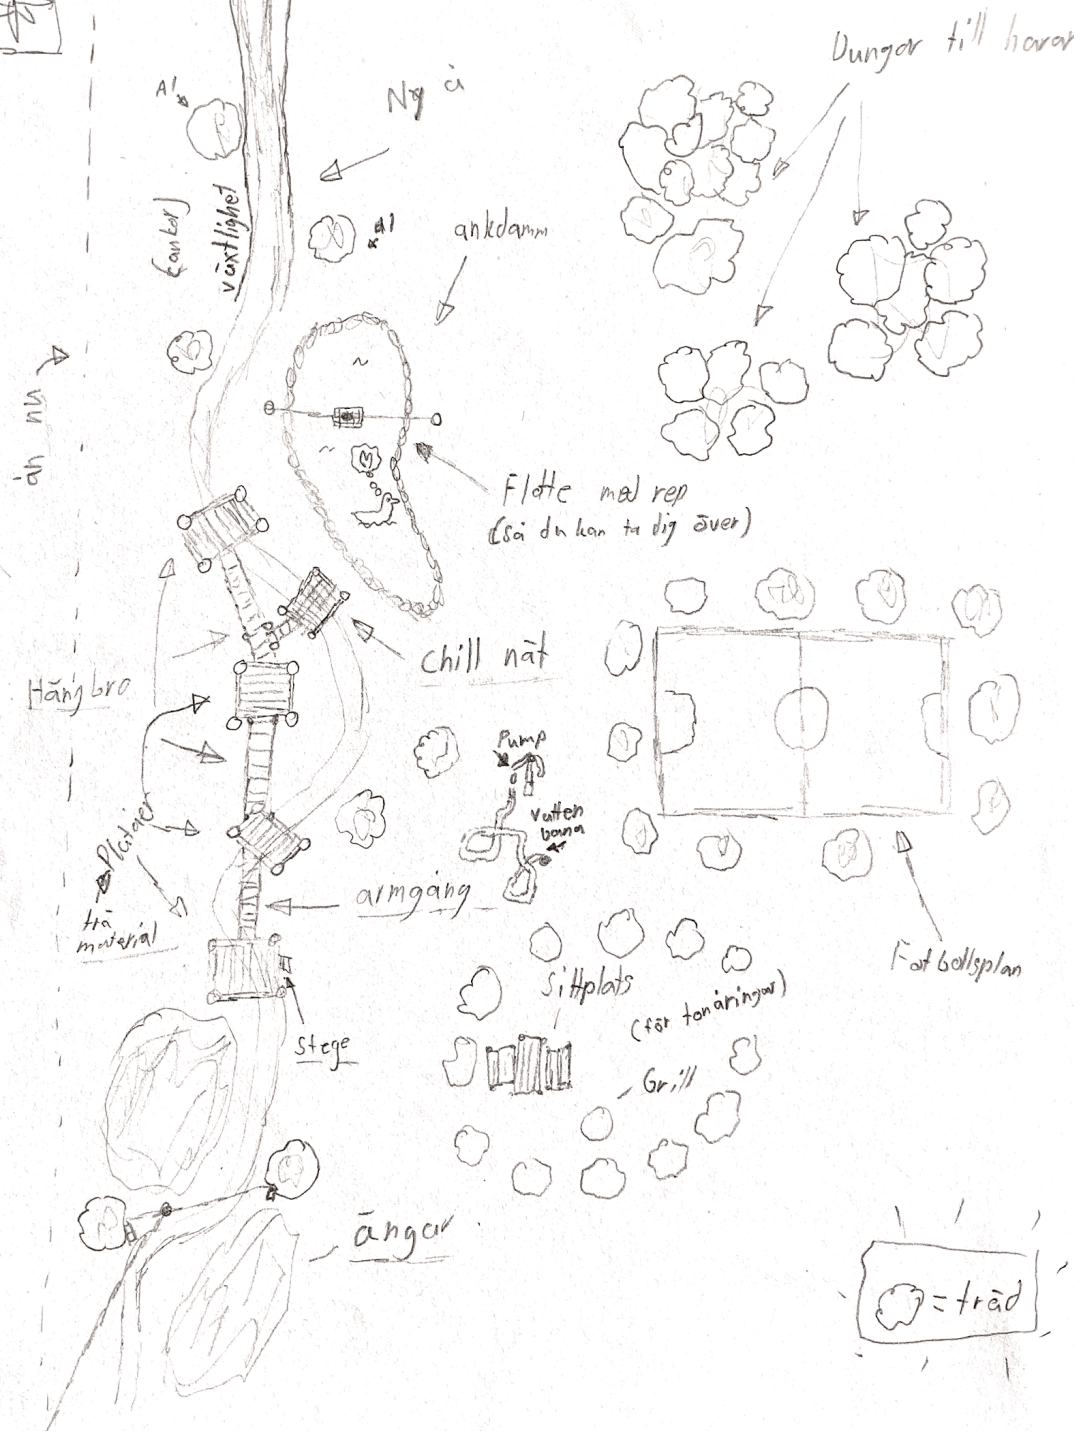 Dungar till harar
Al
Ny å
växtlighet
(ankor)
al
ankdamm
ån nu
Flotte med rep
(så du kan ta dig över)
Chill nät
Hängbro
Pump
Vatten
bana
Platåer
trä
material
armgång
Fotbollsplan
Sittplats
(för tonåringar)
Stege
Grill
ängar
= träd